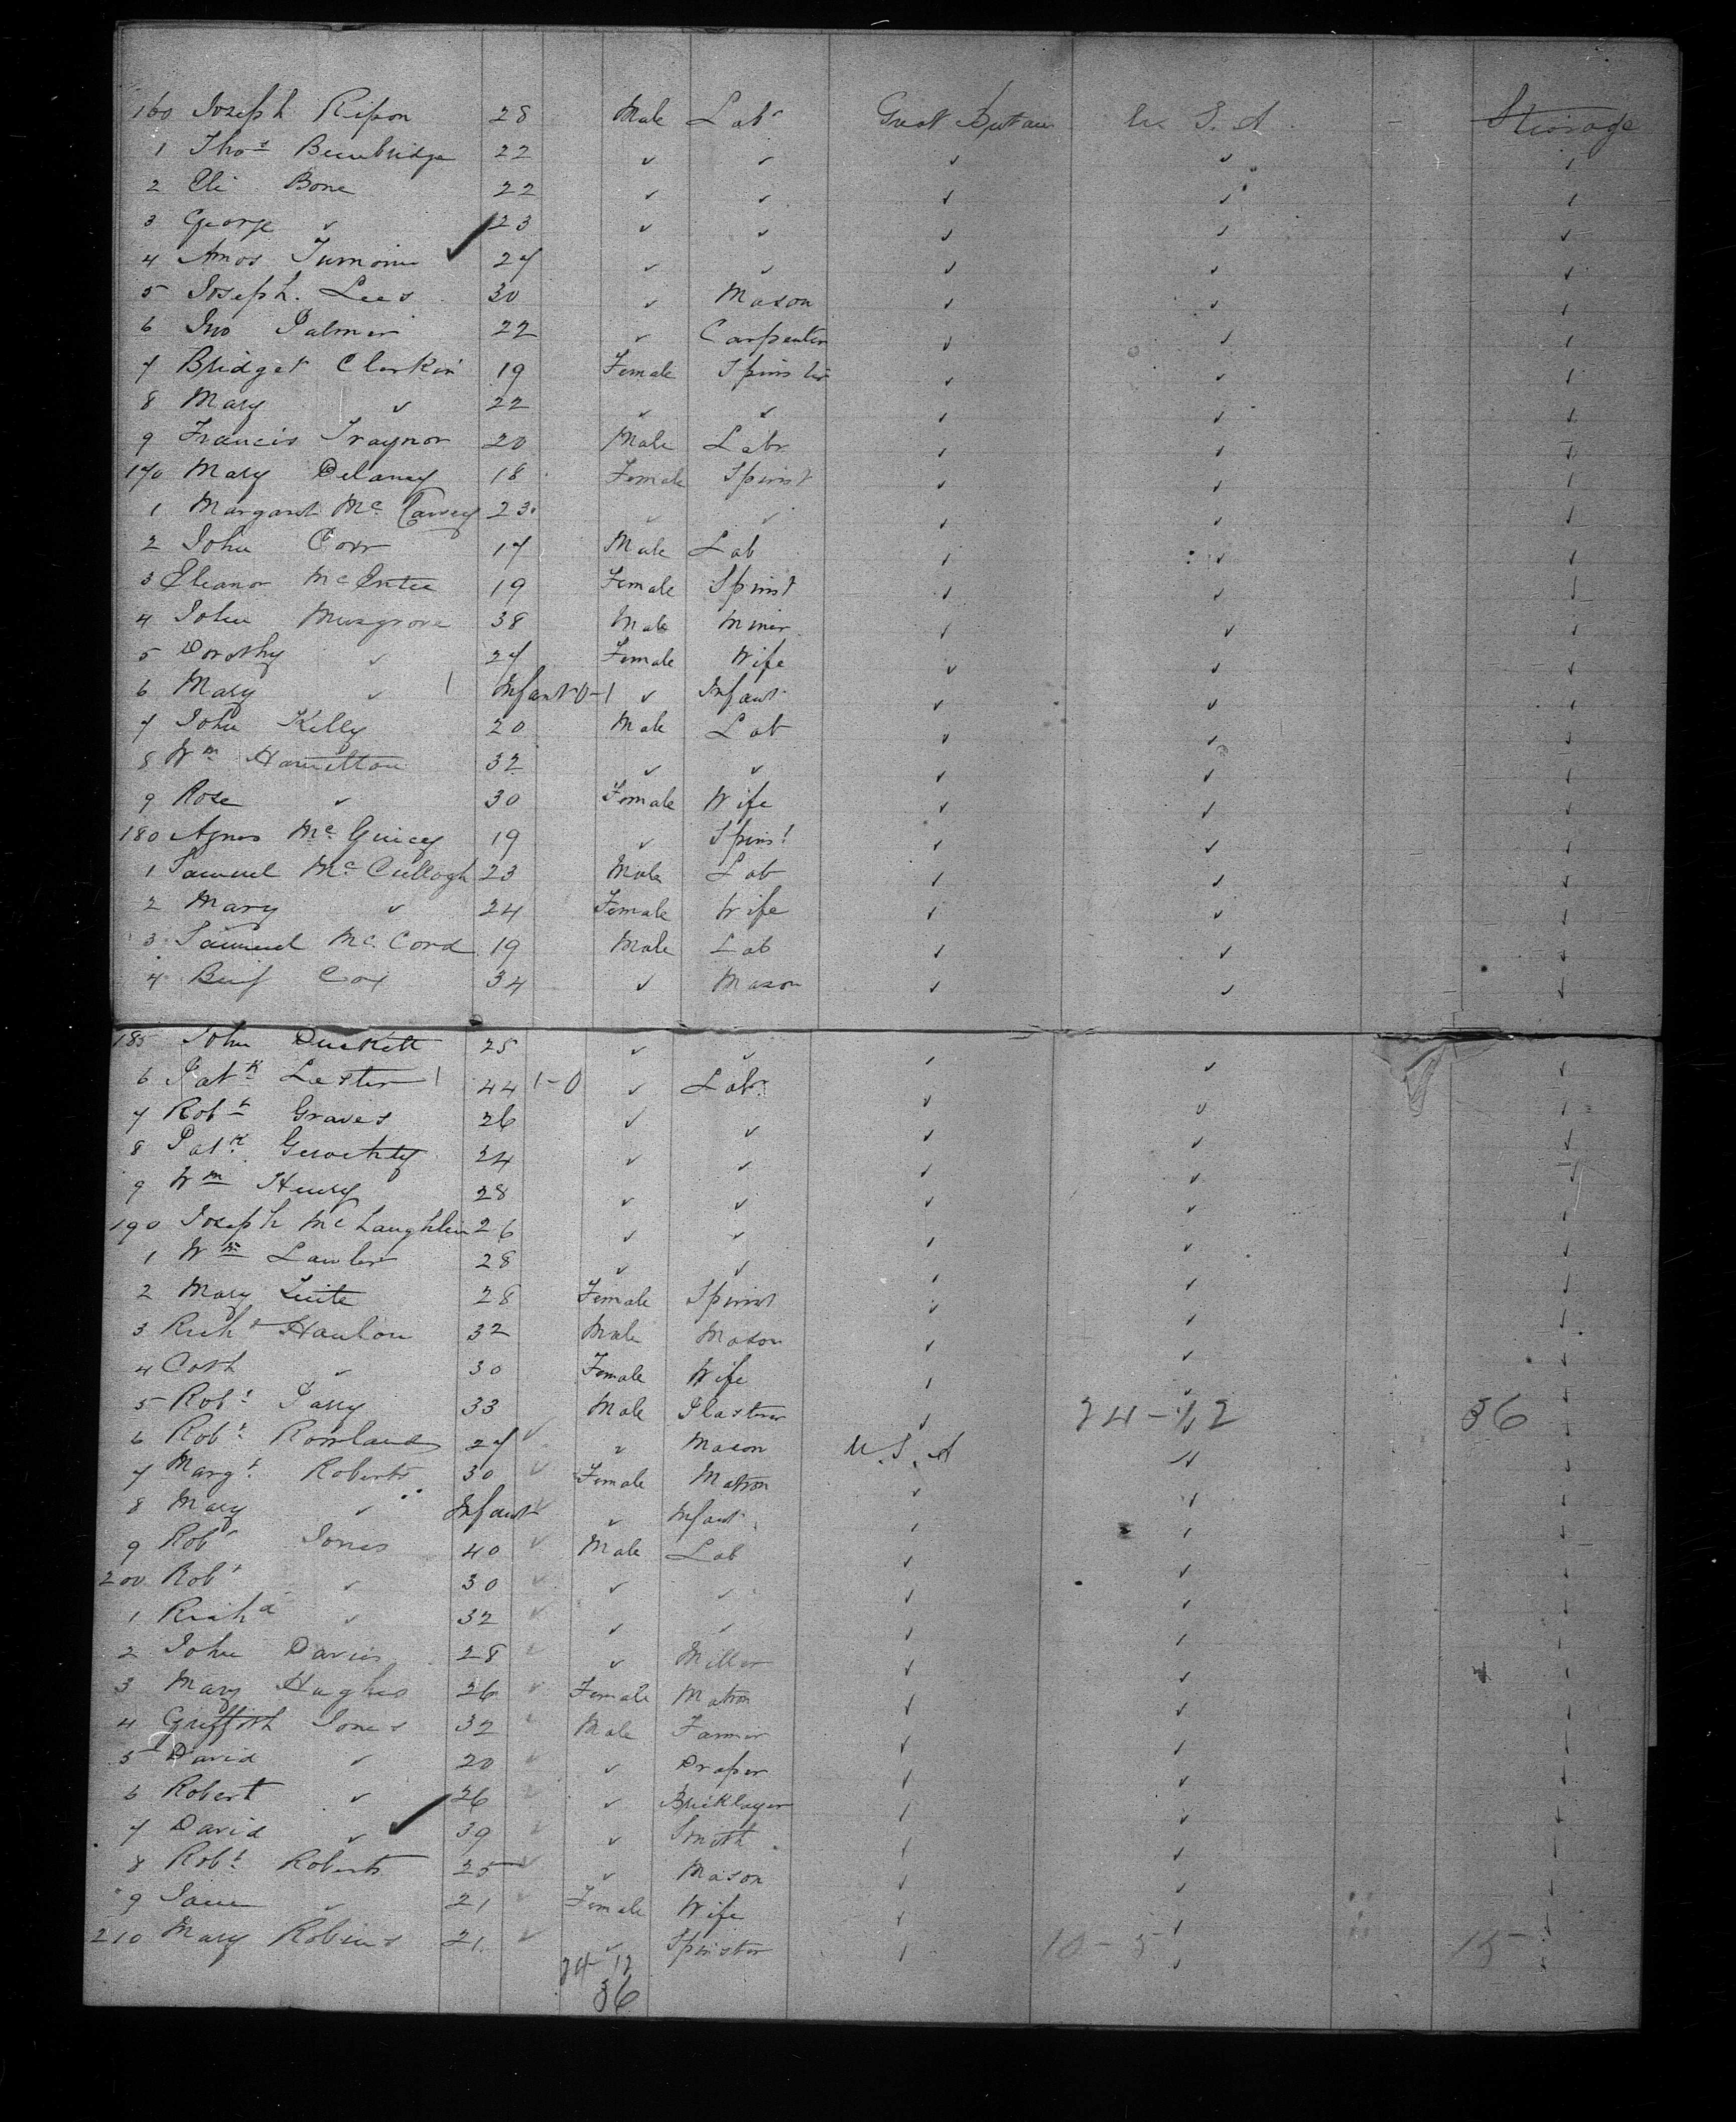 160 Joseph Ripon 28 Male Labr Great Britain U. S. A. Steerage
1 Thos Bembridge 22 ✓ ✓ ✓ ✓ ✓
2 Eli Bone 22 ✓ ✓ ✓ ✓ ✓
3 George ✓ 23 ✓ ✓ ✓ ✓ ✓
4 Amos 27 ✓ ✓ ✓ ✓ ✓
5 Joseph Lees 30 ✓ Mason ✓ ✓ ✓
6 Jno Palmer 22 ✓ Carpenter ✓ ✓ ✓
7 Bridget Clarkin 19 Female Spinster ✓ ✓ ✓
8 Mary ✓ 22 ✓ ✓ ✓ ✓ ✓
9 Francis Traynor 20 Male Labr ✓ ✓ ✓
170 Mary Delaney 18 Female Spinst ✓ ✓ ✓
1 Margaret Mc 23 ✓ ✓ ✓ ✓ ✓
2 John Corr 17 Male Lab ✓ ✓ ✓
3 Eleanor McEntee 19 Female Spinst ✓ ✓ ✓
4 John Musgrove 38 Male Miner ✓ ✓ ✓
5 Dorothy ✓ 27 Female Wife ✓ ✓ ✓
6 Mary ✓ 1 Infant 0-1 ✓ Infant ✓ ✓ ✓
7 John Kelly 20 Male Lab ✓ ✓ ✓
8 Wm Hamilton 32 ✓ ✓ ✓ ✓ ✓
9 Rose ✓ 30 Female Wife ✓ ✓ ✓
180 Agnes Mc 19 ✓ Spinst ✓ ✓ ✓
1 Samuel McCullogh 23 Male Lab ✓ ✓ ✓
2 Mary ✓ 24 Female Wife ✓ ✓ ✓
3 Samuel McCord 19 Male Lab ✓ ✓ ✓
4 Benj Cox 34 ✓ Mason ✓ ✓ ✓
185 John Duckett 25 ✓ ✓ ✓ ✓ ✓
6 Patk Lester 1 44 1-0 ✓ Labr ✓ ✓ ✓
7 Robt Graves 26 ✓ ✓ ✓ ✓ ✓
8 Patk 24 ✓ ✓ ✓ ✓ ✓
9 Wm Henry 28 ✓ ✓ ✓ ✓ ✓
190 Joseph McLaughlin 26 ✓ ✓ ✓ ✓ ✓
1 Wm Lawler 28 ✓ ✓ ✓ ✓ ✓
2 Mary 28 Female Spinst ✓ ✓ ✓
3 Richd Hanlon 32 Male Mason ✓ ✓ ✓
4 Cath ✓ 30 Female Wife ✓ ✓ ✓
5 Robt Parry 33 Male Plasterer ✓ 24-12 36
6 Robt Rowlands 27 ✓ ✓ Mason U. S. A ✓ ✓
7 Margt Roberts 30 ✓ Female Matron ✓ ✓ ✓
8 Mary ✓ Infant ✓ ✓ Infant ✓ ✓ ✓
9 Robt Jones 40 ✓ Male Lab ✓ ✓ ✓
200 Robt ✓ 30 ✓ ✓ ✓ ✓ ✓ ✓
1 Richd ✓ 32 ✓ ✓ ✓ ✓ ✓ ✓
2 John Davies 28 ✓ ✓ Miller ✓ ✓ ✓
3 Mary Hughes 26 ✓ Female Matron ✓ ✓ ✓
4 Griffith Jones 32 ✓ Male Farmer ✓ ✓ ✓
5 David ✓ 20 ✓ ✓ Draper ✓ ✓ ✓
6 Robert ✓ 26 ✓ ✓ Bricklayer ✓ ✓ ✓
7 David ✓ 39 ✓ ✓ Smith ✓ ✓ ✓
8 Robt Roberts 25 ✓ ✓ Mason ✓ ✓ ✓
9 Jane ✓ 21 ✓ Female Wife ✓ ✓ ✓
210 Mary Robins 21 ✓ ✓ Spinster ✓ 10-5 15
24-12
36